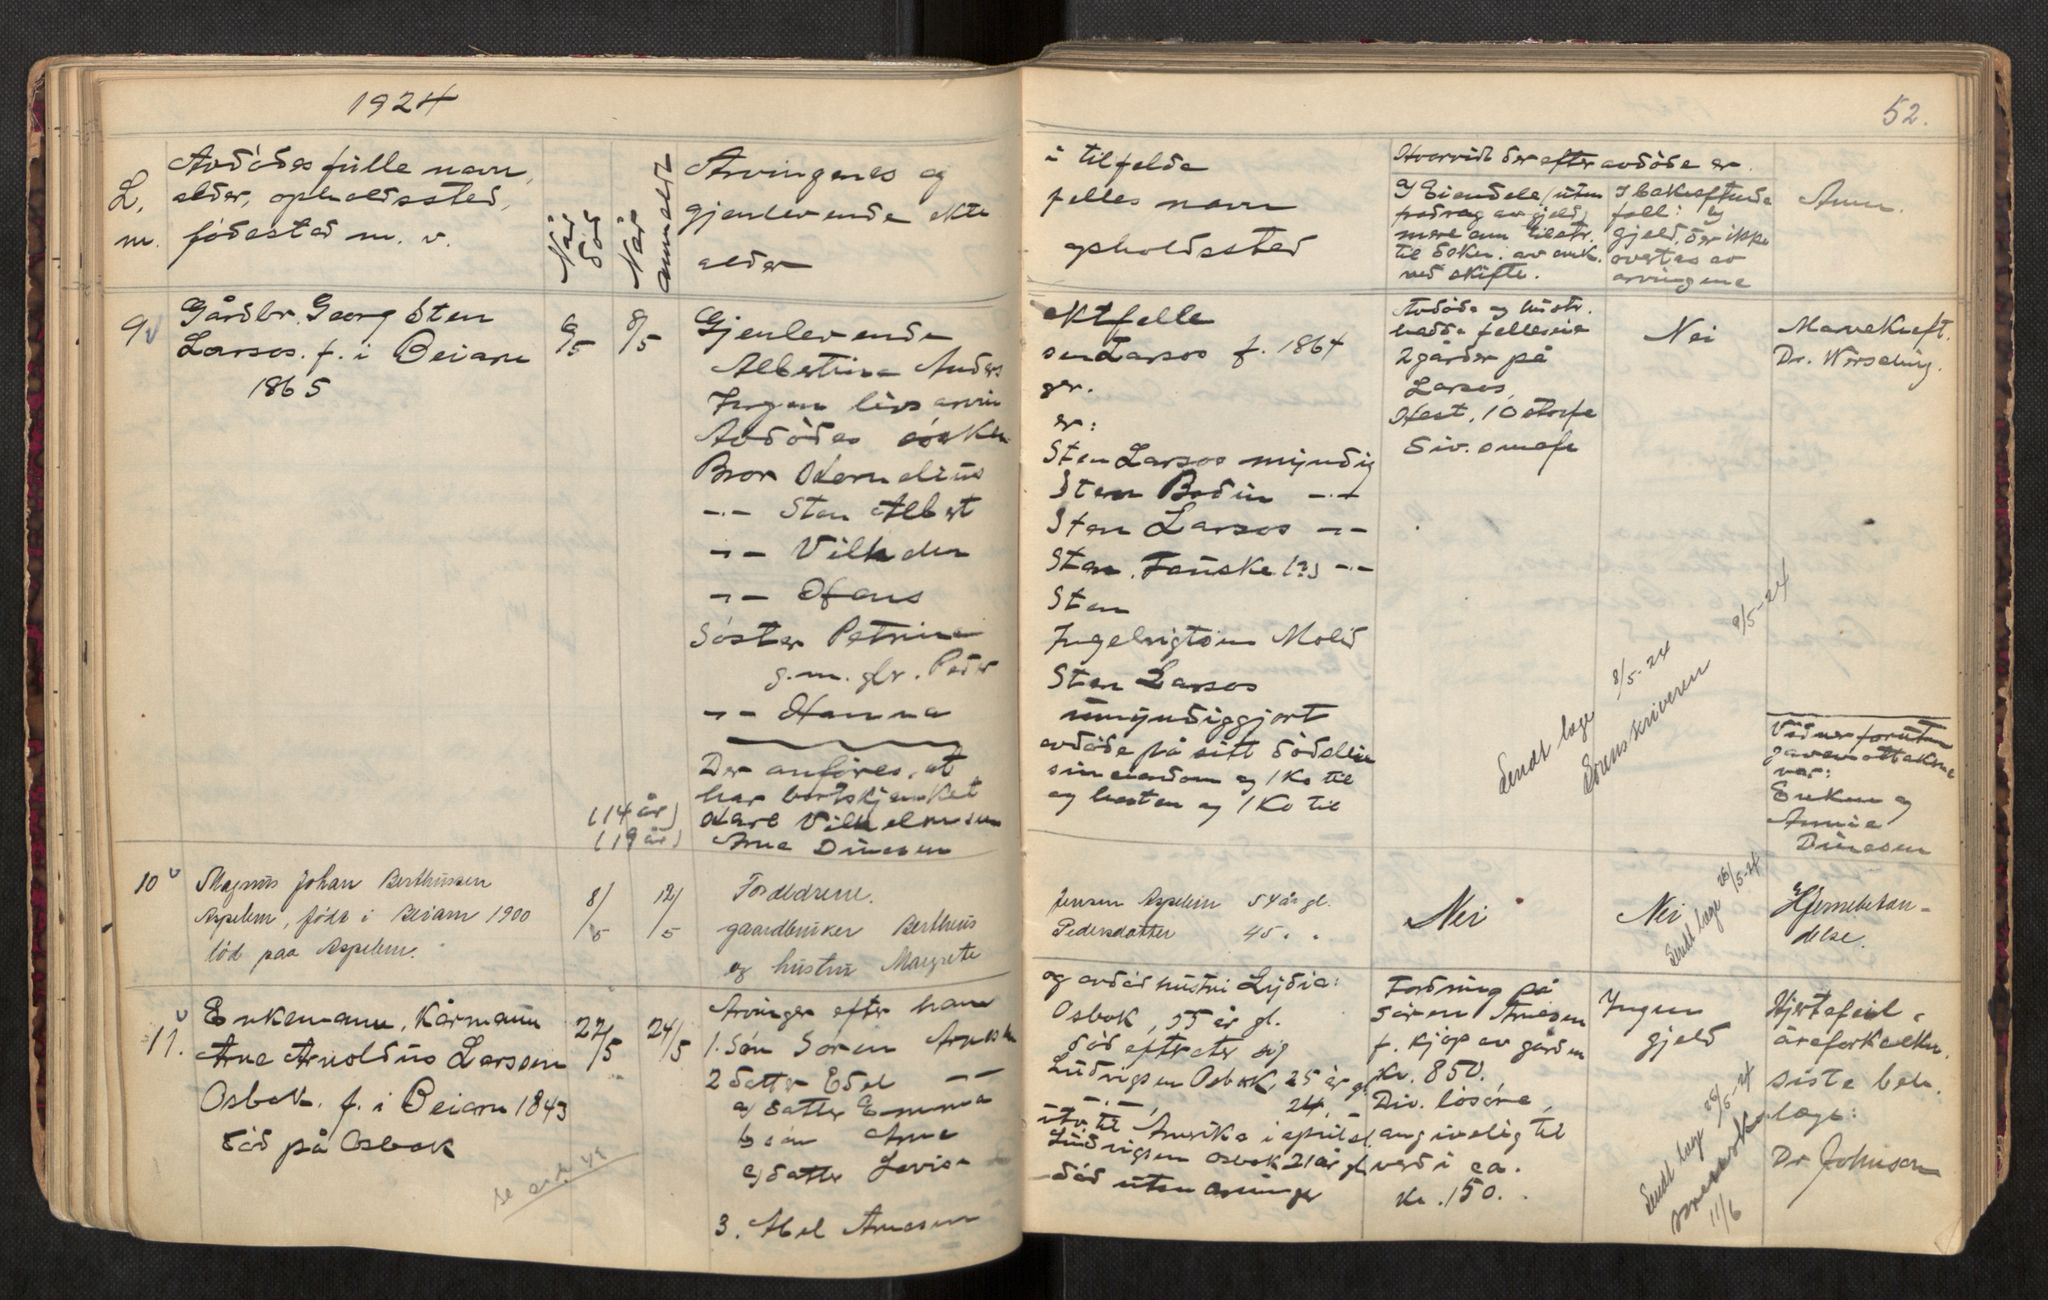 1924
52.
L.
m.
Avdödes fulle navn,
alder, opholdssted,
födested m. v.
Når
död
Når
anmeldt
Arvingenes og
gjenlevende ekte
alder
i tilfelde
felles navn
opholdssted
Hvorvidt der efter avdöde er
a) Eiendele (uten
fradrag av gjeld)
mere enn tilstr.
ved skifte.
I bekreftende
fall:
gjeld, der ikke
overtas av
arvingene
Anm.
9
Gårdbr. Georg Sten
Larsos. f. i Beiarn
1865
6/5
8/5
Gjenlevende
Albertine Anders
Ingen livsarvin
Avdödes
Bror Kornelius
-"- Sten Albert
-"- Vilh
-"-
Söster Petrine
g. m. gbr. Peder
-"- Hanna
Der anföres, at
har bortskjenket
(14 år) Karl Vilhelmsen
(19 år) Arne Dinesen
ektfelle
sen Larsos f. 1864
ger.
er:
Sten Larsos myndig
Sten Bodin -"-
Sten Larsos -"-
Sten. Fauske (?) -"-
Sten
Ingebrigtsen Molid
Sten Larsos
umyndiggjort
avdöde på sitt
sin eiendom og 1 Ko til
og hesten og 1 Ko til
Avdöde og hustr.
hadde felleseie
2 gårder på
Larsos,
Hest, 10 storfe
Div. småfe
Nei
Mavekreft.
Dr.
Sendt lage 8/5-24
Sorenskriveren 9/5-24
Vidner foruten
gavemottakerne
var:
Enken og
Annie
Dinesen
10
Magnus Johan Berthussen
Aspelem, född i Beiarn 1900
död paa Aspelem.
8/5
12/5
Foreldrene.
gaardbruker Bertheus
og hustru Margrete
Jensen Aspelem 54 år gl.
Pedersdatter 45 " "
Nei
Nei
Sendt lage 26/5-24
Hjernebetæn-
delse.
11.
Enkemann, Kårmann
Arne Arnoldus Larssen
Osbak. f. i Beiarn 1843
död på Osbak
se
22/5
24/5
Arvinger efter ham
1. Sön Sören Arnesen
2 datter Edel -"-
a) datter Emma
b) sön Arne
c) datter Lovise
3. Abel Arnesen
og avdöd hustru Lydia:
Osbak, 55 år gl.
död efterlater sig
Ludvigsen Osbak, 25 år gl
-"- -"-, 24, -"-
utv. til Amerika i april
Ludvigsen Osbak 21 år gl
död uten arvinger
Fordring på
Sören Arnesen
f. kjöp av gården
kr. 850.
Div. lösöre,
angivelig til
verdi ca.
kr. 150.
Ingen
gjeld
Sendt lage 26/5-24
11/6
Hjertefeil,
åreforkalkn.
siste beh.
læge:
Dr Johnsen